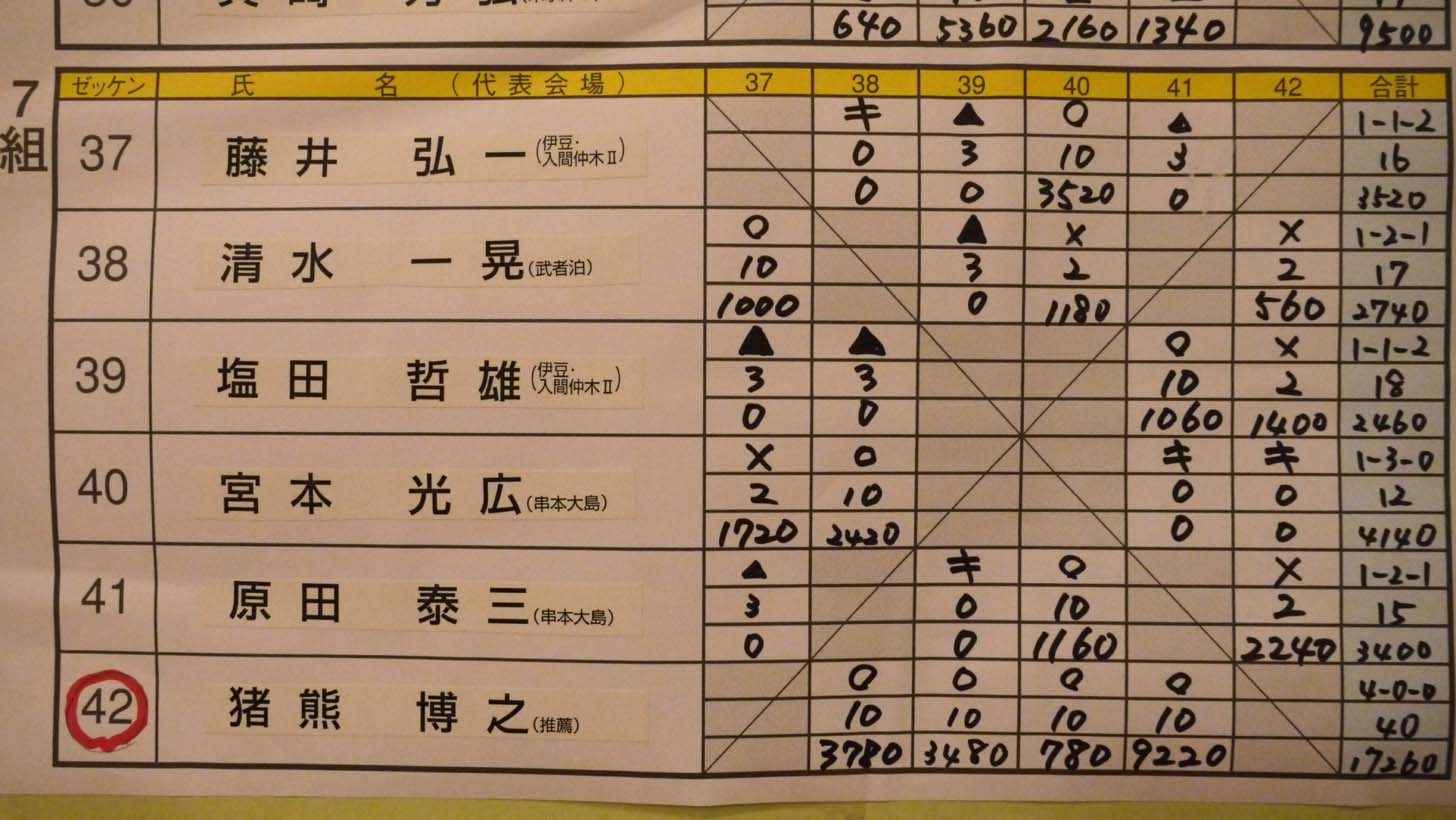 640 5360 2160 1340 9500
7組
ゼッケン 氏 名 (代表会場) 37 38 39 40 41 42 合計
キ ▲ ○ ▲ 1-1-2
37 藤井 弘一(伊豆・入間仲木Ⅱ) 0 3 10 3 16
0 0 3520 0 3520
○ ▲ × × 1-2-1
38 清水 一晃(武者泊) 10 3 2 2 17
1000 0 1180 560 2740
▲ ▲ ○ × 1-1-2
39 塩田 哲雄(伊豆・入間仲木Ⅱ) 3 3 10 2 18
0 0 1060 1400 2460
× ○ キ キ 1-3-0
40 宮本 光広(串本大島) 2 10 0 0 12
1720 2420 0 0 4140
▲ キ ○ × 1-2-1
41 原田 泰三(串本大島) 3 0 10 2 15
0 0 1160 2240 3400
○ ○ ○ ○ 4-0-0
42 猪熊 博之(推薦) 10 10 10 10 40
3780 3480 780 9220 17260